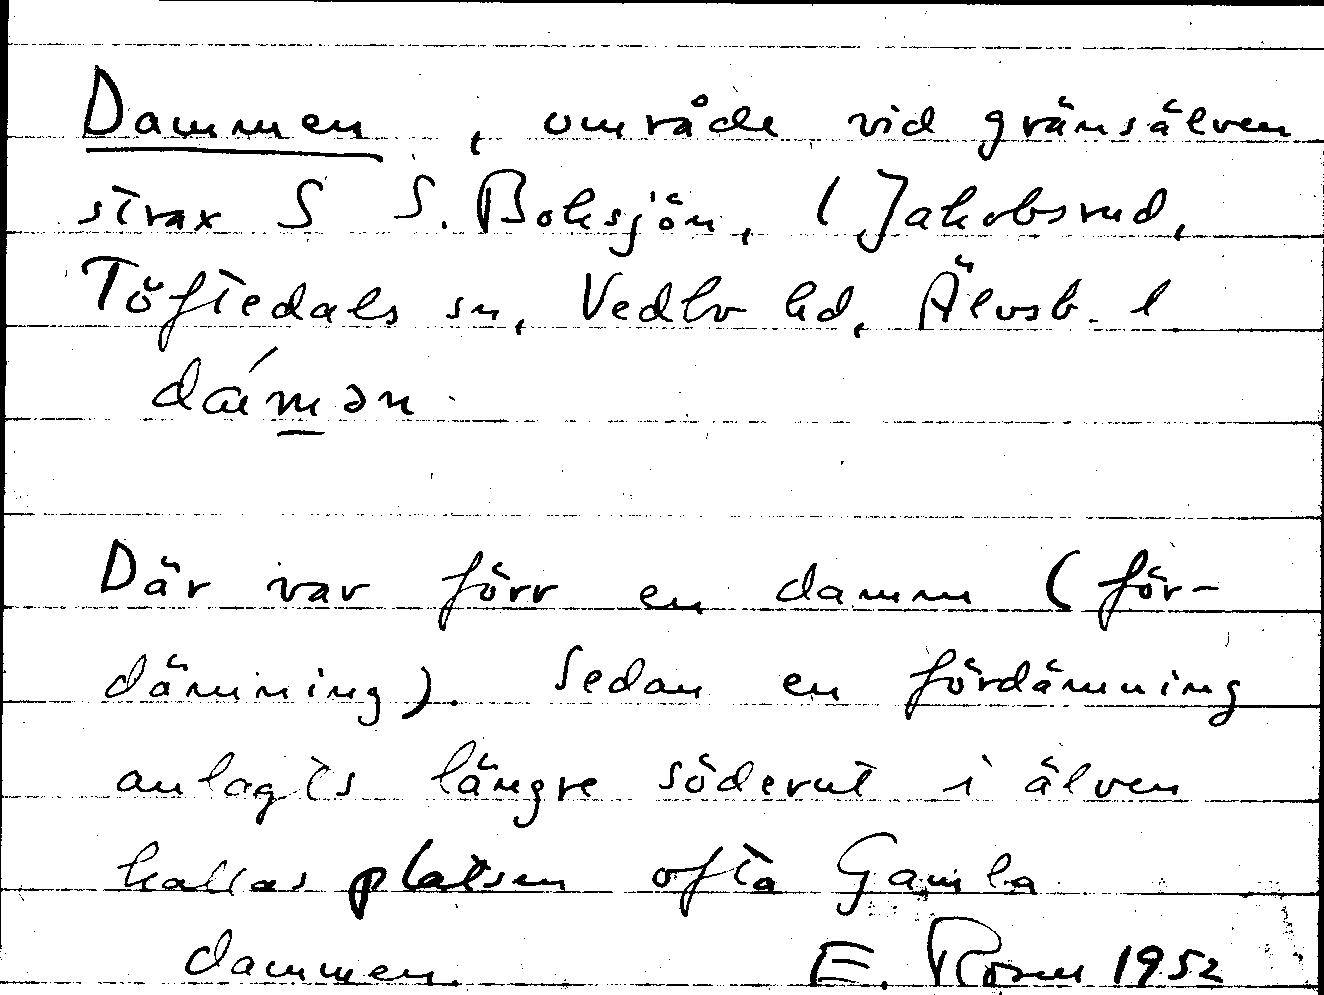 Dammen, område vid gränsälven
strax S S. Boksjön, (Jakobsrud,
Töftedals sn, Vedbo hd, Älvsb. l
dámən
Där var förr en damm (för-
dämning). Sedan en fördämning
anlagts längre söderut i älven
kallas platsen ofta Gamla
dammen. E. Rosell 1952